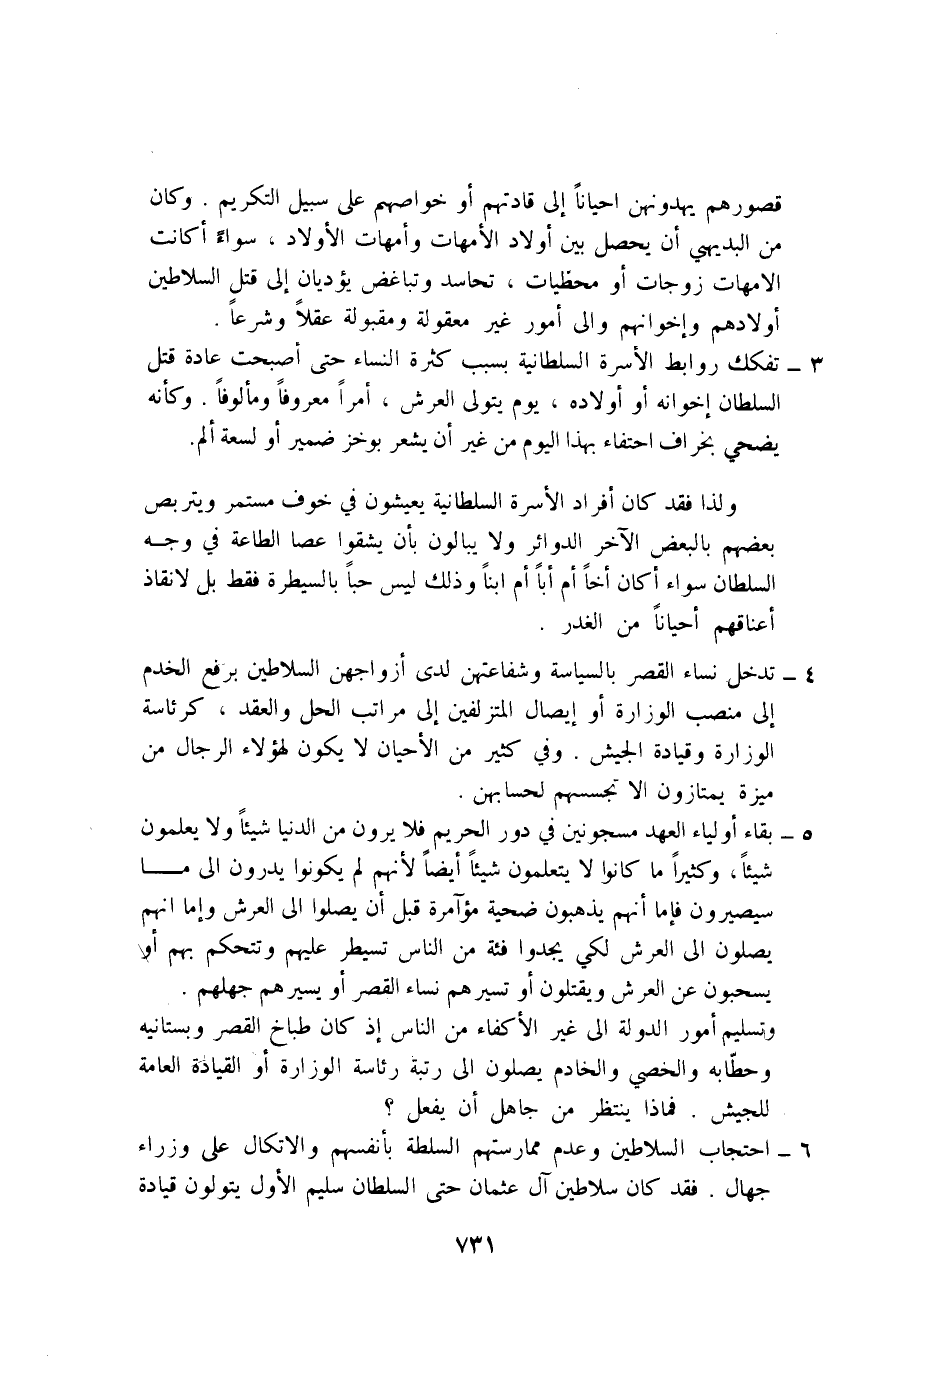 قصورهم يهدونهن احياناً إلى قادتهم أو خواصهم على سبيل التكريم . وكان
من البديهي أن يحصل بين أولاد الأمهات وأمهات الأولاد ، سواءً أكانت
الامهات زوجات أو محظيات ، تحاسد وتباغض يؤديان إلى قتل السلاطين
أولادهم وإخوانهم والى أمور غير معقولة ومقبولة عقلاً وشرعاً .
٣ ـ تفكك روابط الأسرة السلطانية بسبب كثرة النساء حتى أصبحت عادة قتل
السلطان إخوانه أو أولاده ، يوم يتولى العرش ، أمراً معروفاً ومألوفاً . وكأنه
يضحي بخراف احتفاء بهذا اليوم من غير أن يشعر بوخز ضمير أو لسعة ألم.
ولذا فقد كان أفراد الأسرة السلطانية يعيشون في خوف مستمر ويتربص
بعضهم بالبعض الآخر الدوائر ولا يبالون بأن يشقوا عصا الطاعة في وجــه
السلطان سواء أكان أخاً أم أباً أم ابناً وذلك ليس حباً بالسيطرة فقط بل لانقاذ
أعناقهم أحياناً من الغدر .
٤ ـ تدخل نساء القصر بالسياسة وشفاعتهن لدى أزواجهن السلاطين برفع الخدم
إلى منصب الوزارة أو إيصال المتزلفين إلى مراتب الحل والعقد ، كرئاسة
الوزارة وقيادة الجيش . وفي كثير من الأحيان لا يكون لهؤلاء الرجال من
ميزة يمتازون الا تجسسهم لحسابهن .
٥ ـ بقاء أولياء العهد مسجونين في دور الحريم فلا يرون من الدنيا شيئاً ولا يعلمون
شيئاً، وكثيراً ما كانوا لا يتعلمون شيئاً أيضاً لأنهم لم يكونوا يدرون الى مــــا
سيصيرون فإما أنهم يذهبون ضحية مؤآمرة قبل أن يصلوا الى العرش وإما انهم
يصلون الى العرش لكي يجدوا فئة من الناس تسيطر عليهم وتتحكم بهم أو
يسحبون عن العرش ويقتلون أو تسيرهم نساء القصر أو يسيرهم جهلهم .
وتسليم أمور الدولة الى غير الأكفاء من الناس إذ كان طباخ القصر وبستانيه
وحطّابه والخصي والخادم يصلون الى رتبة رئاسة الوزارة أو القيادة العامة
للجيش . فماذا ينتظر من جاهل أن يفعل ؟
٦ ـ احتجاب السلاطين وعدم ممارستهم السلطة بأنفسهم والاتكال على وزراء
جهال . فقد كان سلاطين آل عثمان حتى السلطان سليم الأول يتولون قيادة
٧٣١